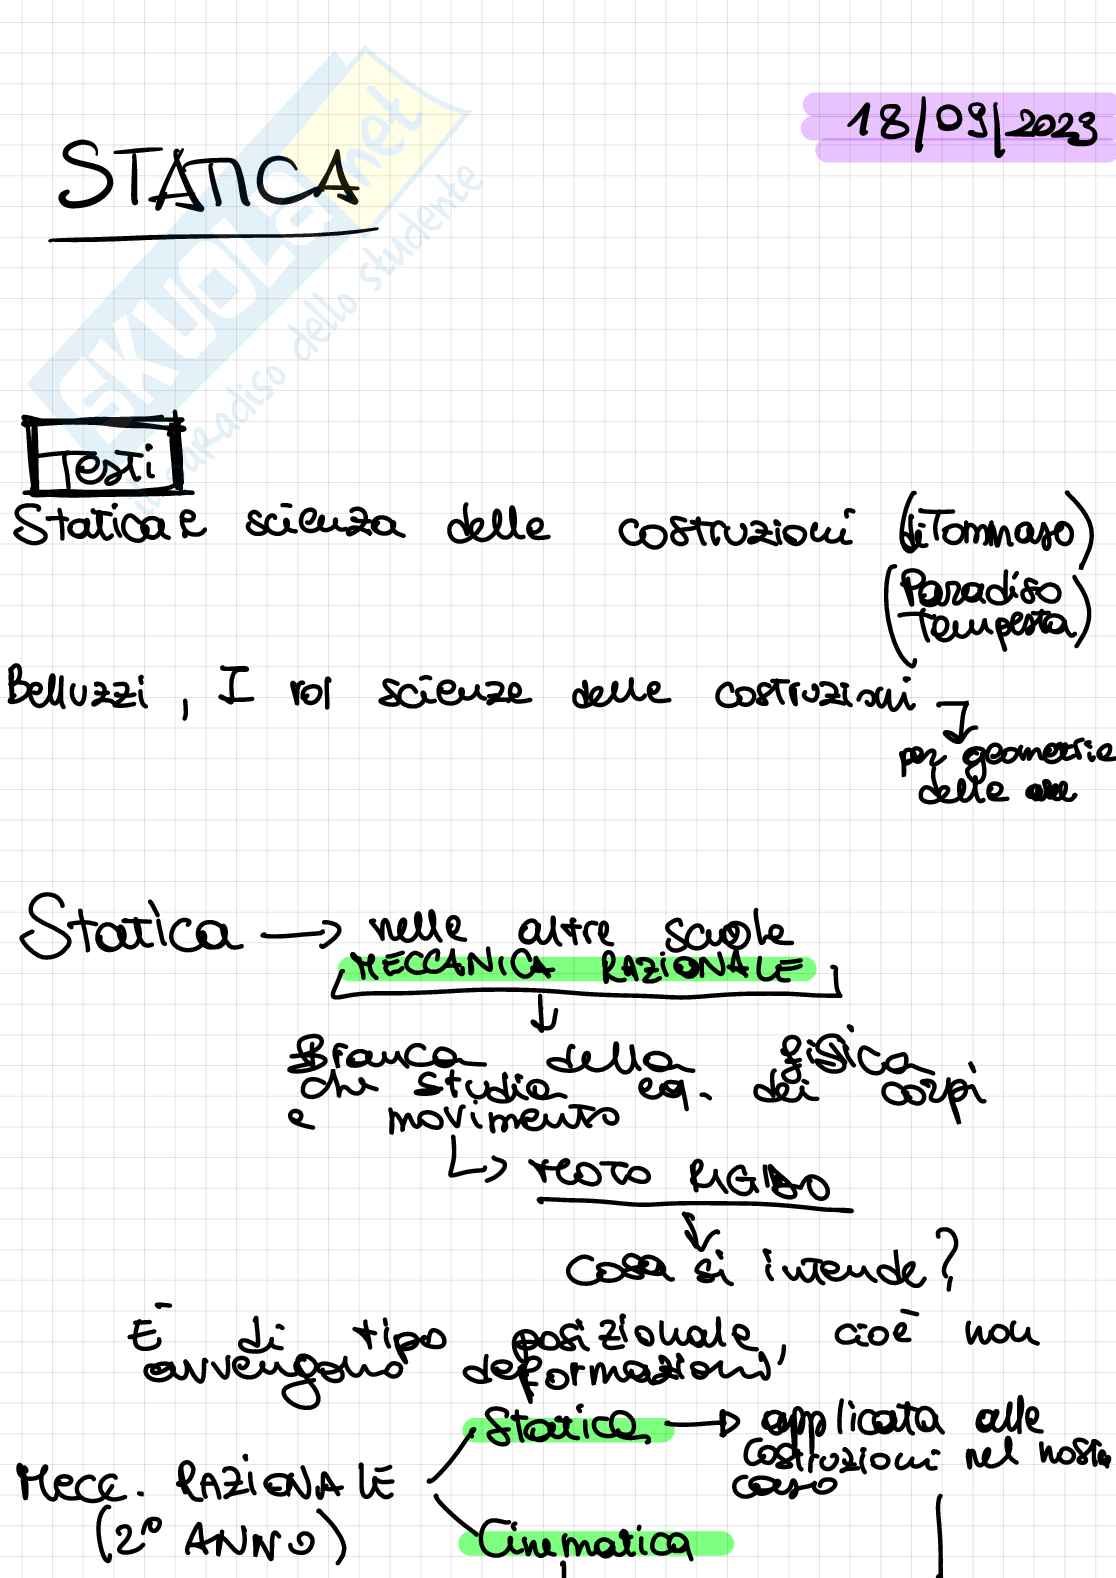 18/09/2023
STATICA
SKUOLA.net
il paradiso dello studente
Testi
Statica e scienza delle costruzioni (di Tommaso)
(Paradiso
Tempesta)
Belluzzi, I vol scienze delle costruzioni
per geometrie
delle aree
Statica → nelle altre scuole
MECCANICA RAZIONALE
Branca della fisica
che studia eq. dei corpi
e movimento
MOTO RIGIDO
Cosa si intende?
È di tipo posizionale, cioè non
avvengono deformazioni
Statica → applicata alle
costruzioni nel nostro
caso
Mecc. RAZIONALE
(2° ANNO)
Cinematica